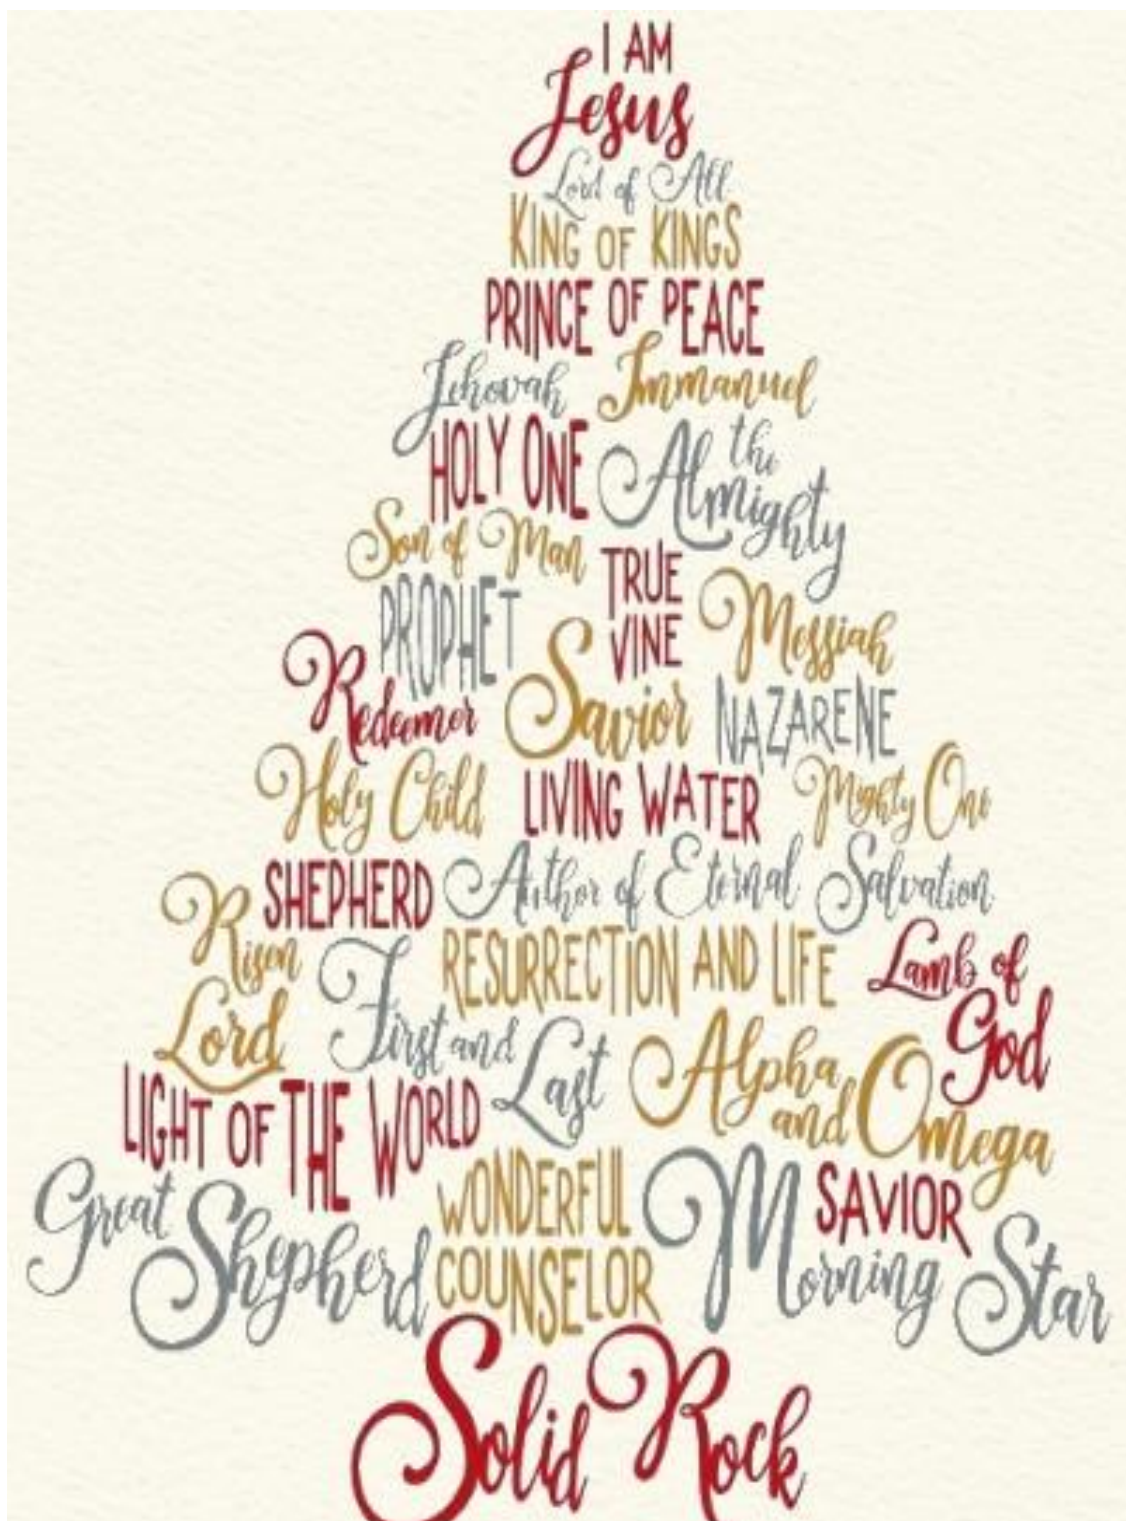 I AM
Jesus
Lord of All
KING OF KINGS
PRINCE OF PEACE
Jehovah Immanuel
HOLY ONE the Almighty
Son of Man
TRUE VINE
PROPHET
Messiah
Redeemer
Savior
NAZARENE
Holy Child LIVING WATER Mighty One
SHEPHERD Author of Eternal Salvation
Risen Lord
RESURRECTION AND LIFE
Lamb of God
First and Last
Alpha and Omega
LIGHT OF THE WORLD
Great Shepherd
WONDERFUL COUNSELOR
SAVIOR
Morning Star
Solid Rock